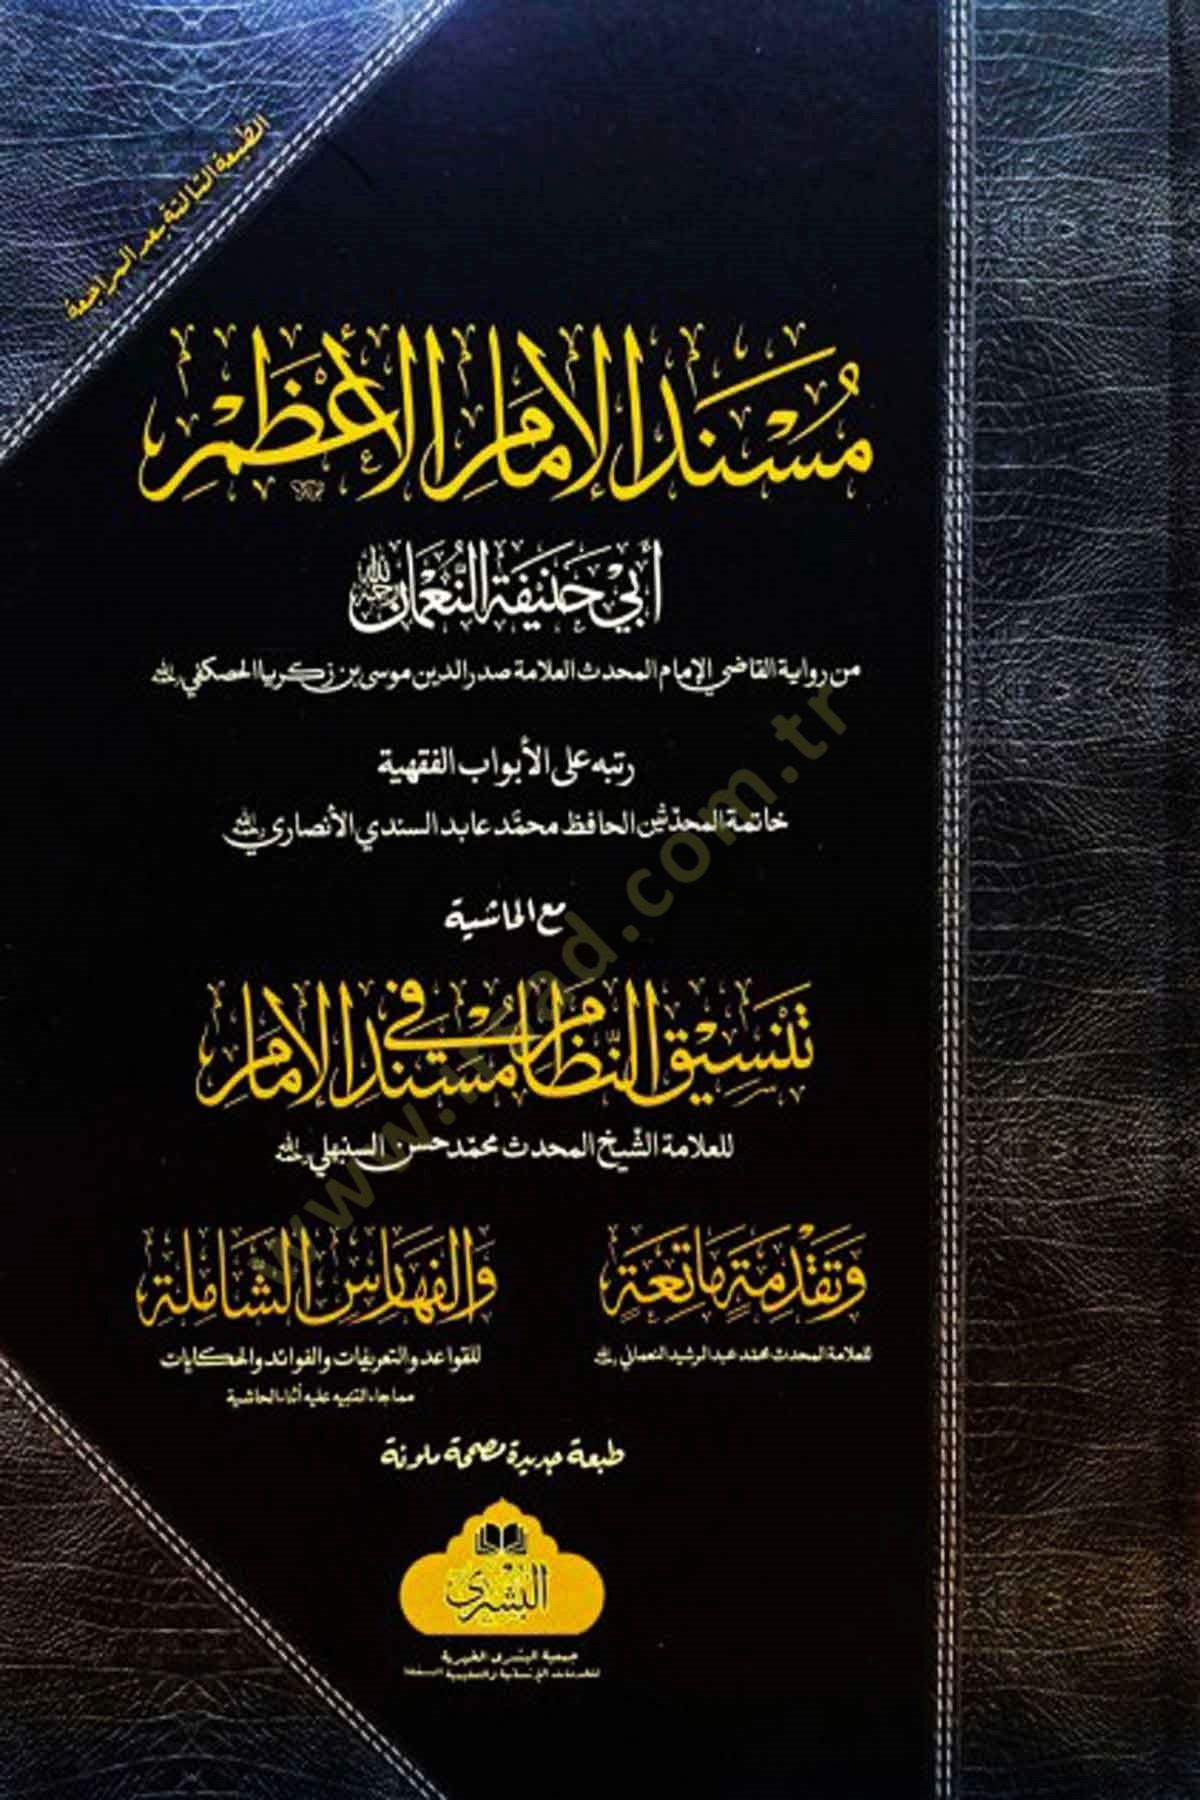 الطبعة الثالثة بعد المراجعة
مُسْنَدُ الإِمَامِ الأَعْظَمِ
أَبِي حَنِيفَةَ النُّعْمَانِ رحمه الله
من رواية القاضي الإمام المحدث العلامة صدر الدين موسى بن زكريا الحصكفي رحمه الله
رتبه على الأبواب الفقهية
خاتمة المحدّثين الحافظ محمّد عابد السندي الأنصاري رحمه الله
مع الحاشية
تَنْسِيقُ النِّظَامِ فِي مُسْنَدِ الإِمَامِ
للعلامة الشّيخ المحدث محمّد حسن السنبهلي رحمه الله
وَتَقْدِمَةٍ مَاتِعَةٍ
للعلامة المحدث محمد عبد الرشيد النعماني رحمه الله
وَالفَهَارِسِ الشَّامِلَة
للقواعد والتعريفات والفوائد والحكايات
مما جاء التنبيه عليه أثناء الحاشية
طبعة جديدة مصححة ملونة
البشرى
جمعية البشرى الخيرية
للخدمات الإنسانية والتعليمية
www.irsad.com.tr